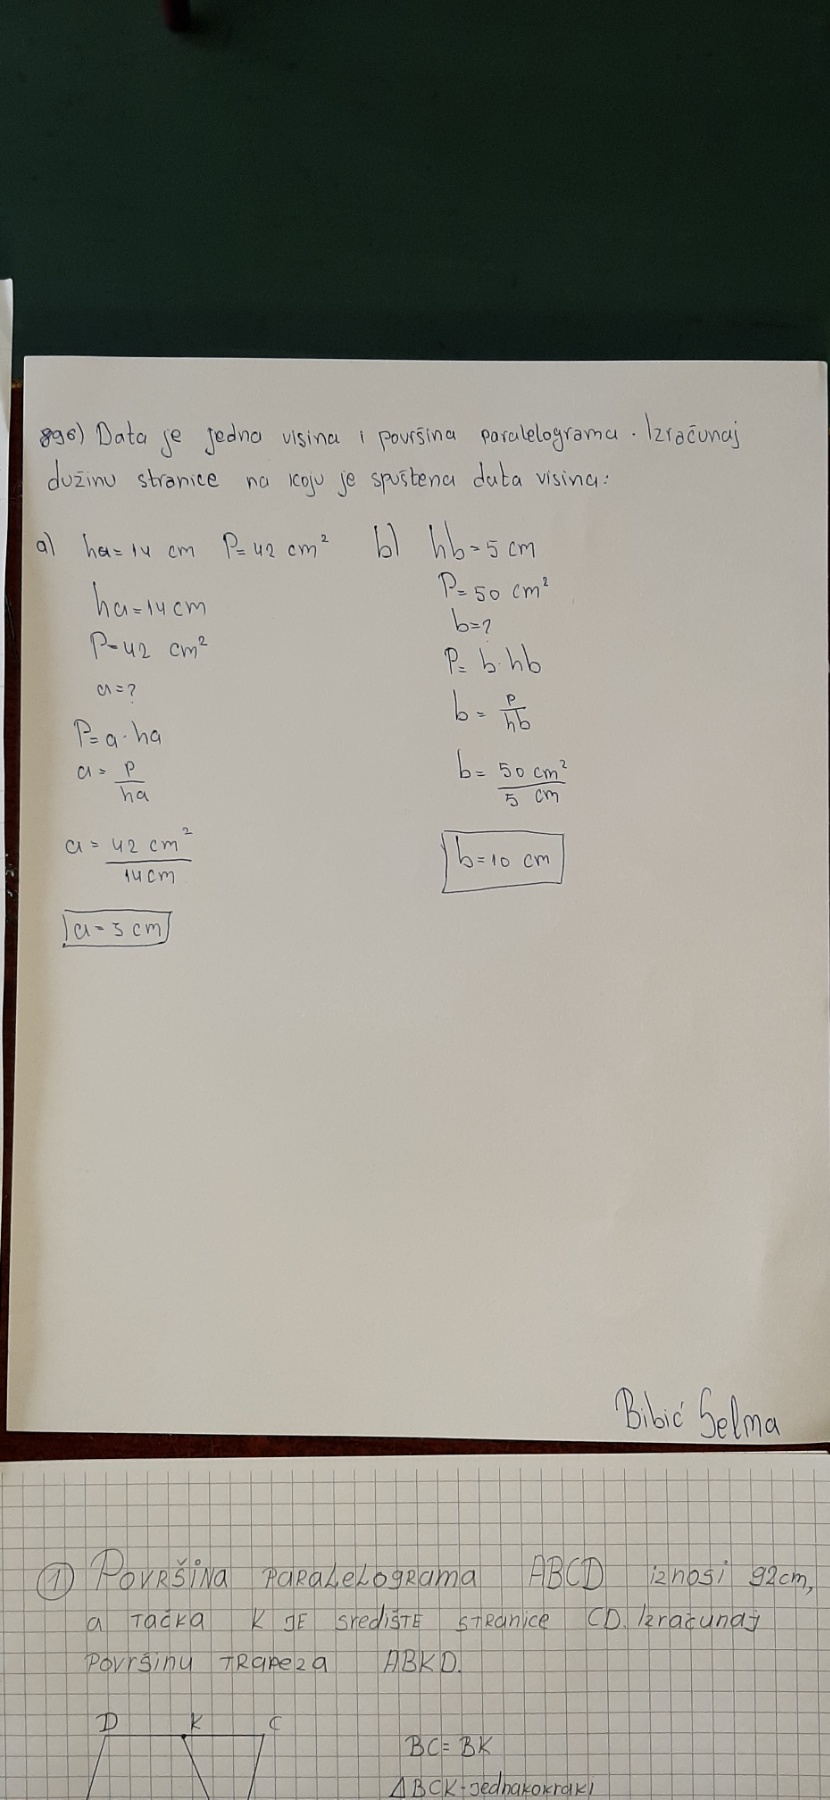 896) Data je jedna visina i površina paralelograma. Izračunaj
dužinu stranice na koju je spuštena data visina:
a) ha=14 cm P=42 cm²
ha=14cm
P=42 cm²
a=?
P=a·ha
a= P/ha
a= 42 cm²/14cm
a=3 cm
b) hb=5 cm
P=50 cm²
b=?
P= b·hb
b= P/hb
b= 50 cm²/5 cm
b=10 cm
Bibić Selma
① POVRŠINA PARALELOGRAMA ABCD iznosi 92cm,
a TAČKA K JE SREDIŠTE STRANICE CD. Izračunaj
POVRŠINU TRAPEZA ABKD.
D K C
BC= BK
ΔBCK-jednakokraki